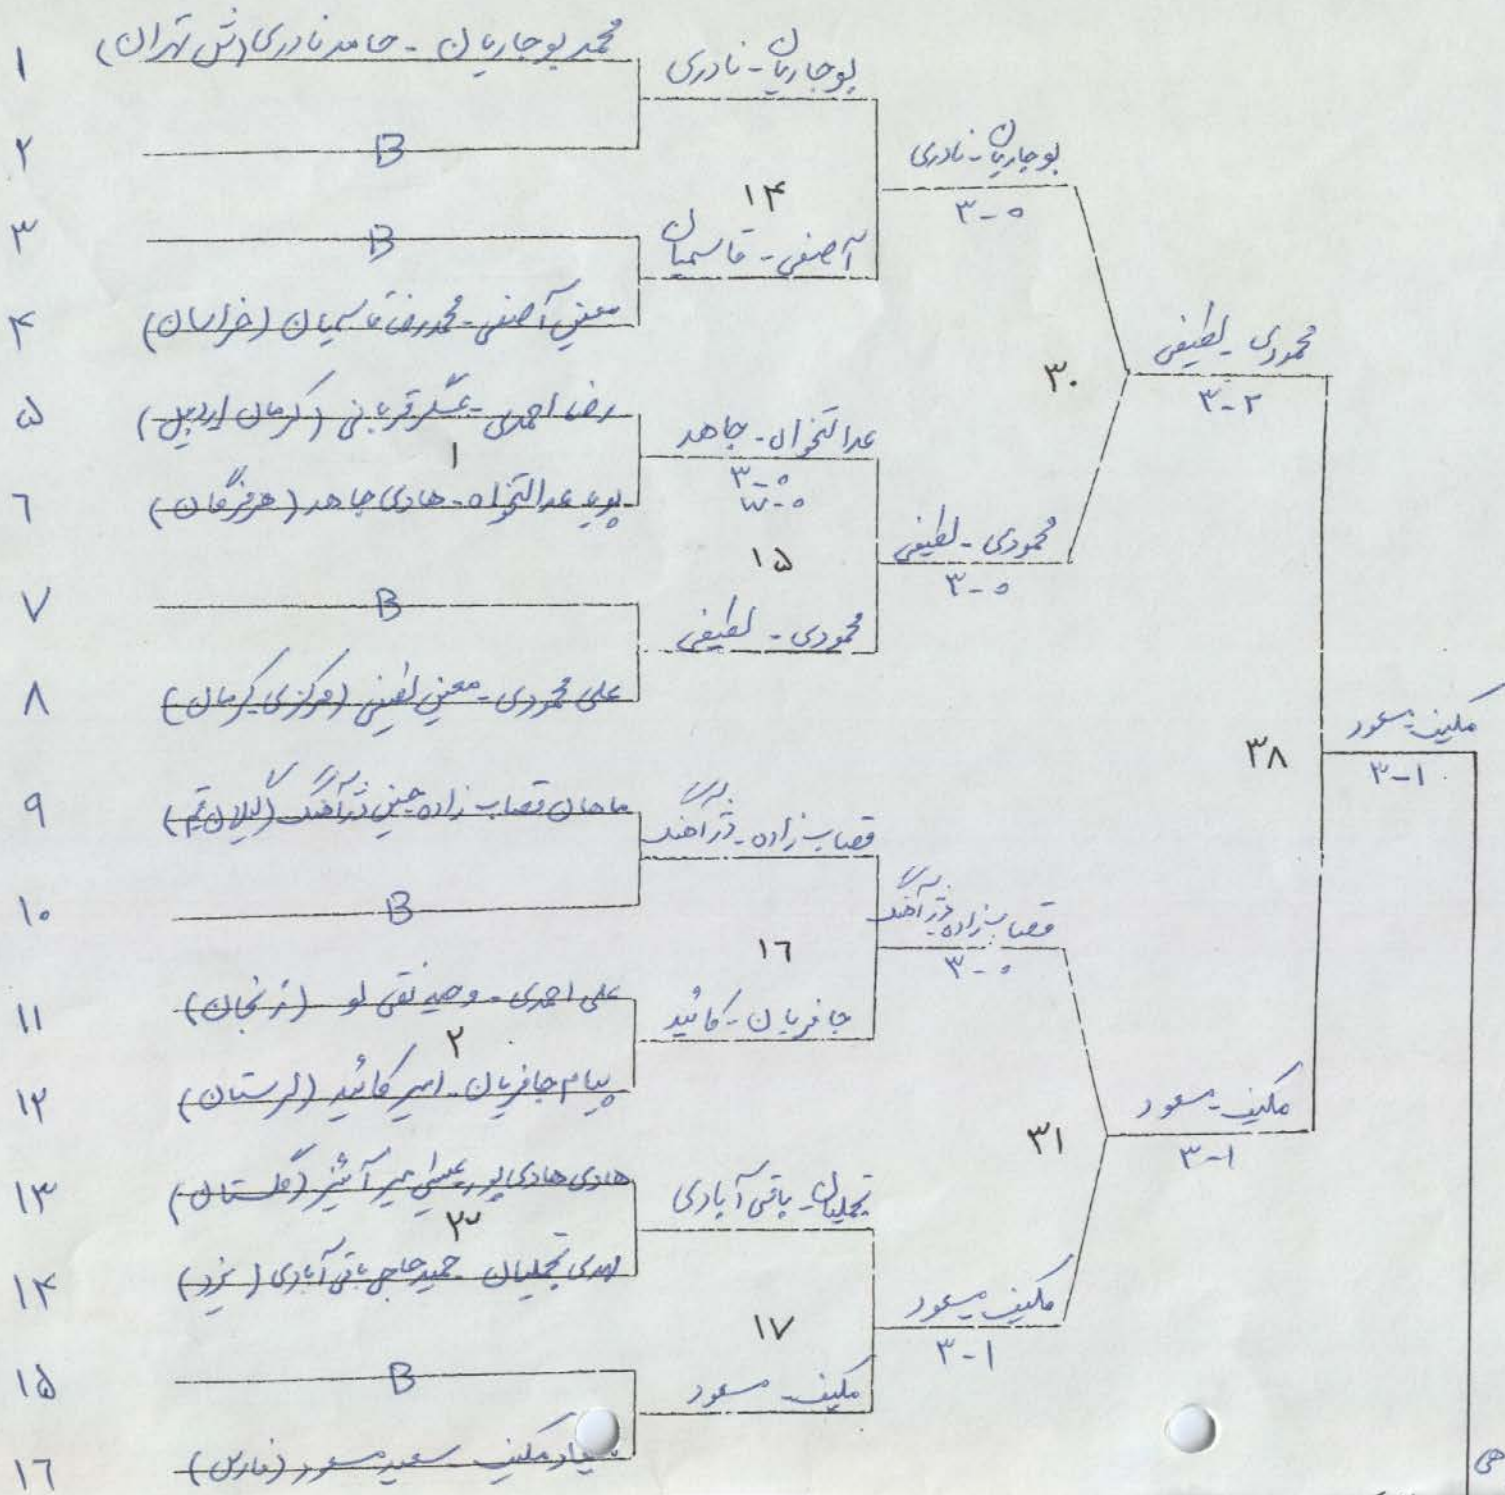 ۱ محمد بوجاریان - حامد نادری (ش تهران)
۲ B
۳ B
۴ معین آصفی - محمدرضا قاسمیان (خراسان)
۵ رضا احمدی - عسگر قربانی (کرمان اردبیل)
۱
۶ پویا عدالتخواه - هادی جاهد (هرمزگان)
۷ B
۸ علی محمودی - معین لطیفی (مرکزی کرمان)
۹ ماهان قصاب زاده (گیلان قم)
۱۰ B
۱۱ علی احمدی - وحید نقی لو (زنجان)
۲
۱۲ پیام جافریان - امیر کائید (لرستان)
۱۳ هادی هادی پور - عیسی میر (گلستان)
۳
۱۴ مهدی تجملیان - حمید حاجی باقی آبادی (یزد)
۱۵ B
۱۶ مکیف سعید مسعود (فارس)
بوجاریان - نادری
۱۴
آصفی - قاسمیان
عدالتخواه - جاهد
۳-۰
۳-۰
۱۵
محمودی - لطیفی
قصاب زاده
۱۶
جافریان - کائید
تجملیان - باقی آبادی
۱۷
مکیف - مسعود
بوجاریان - نادری
۳-۰
۳۰
محمودی - لطیفی
۳-۰
قصاب زاده
۳-۰
۳۱
مکیف - مسعود
۳-۱
محمودی - لطیفی
۳-۲
۳۸
مکیف - مسعود
۳-۱
مکیف - مسعود
۳-۱